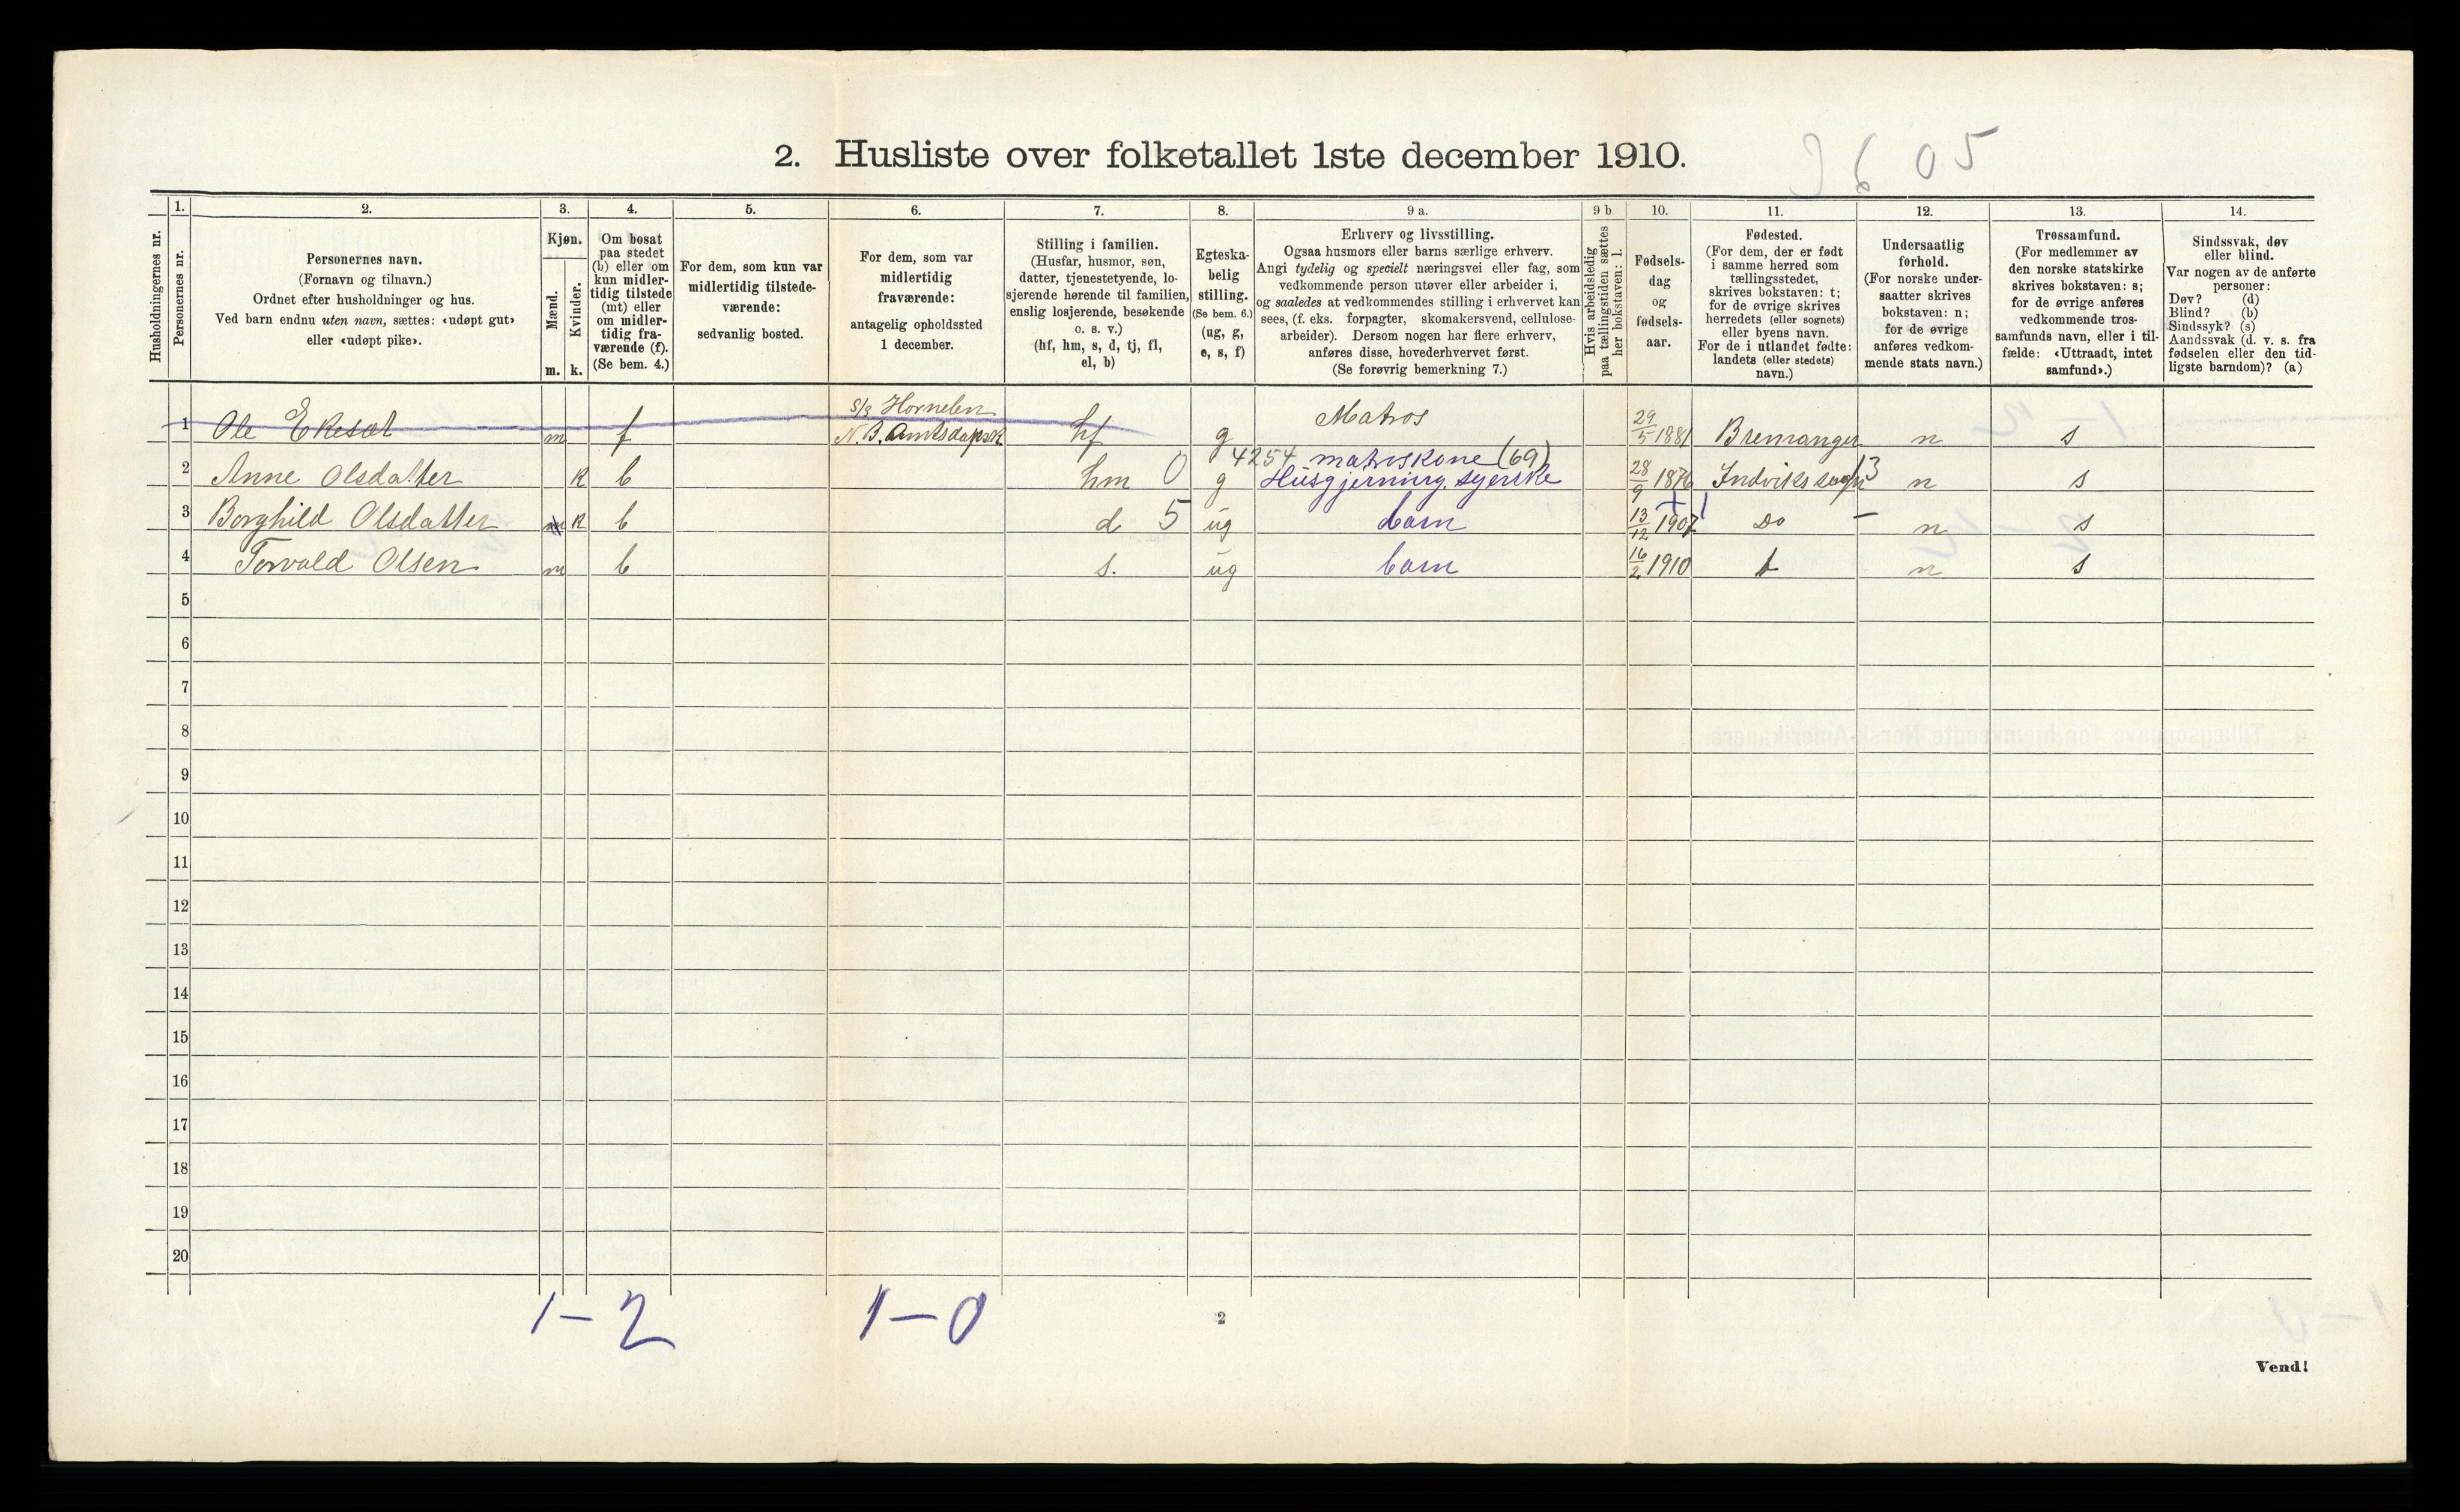 2. Husliste over folketallet 1ste december 1910.
9605
Husholdningernes nr.
1.
Personernes nr.
2.
Personernes navn.
(Fornavn og tilnavn.)
Ordnet efter husholdninger og hus.
Ved barn endnu uten navn, sættes: «udøpt gut»
eller «udøpt pike».
3.
Kjøn.
Mænd.
Kvinder.
m. k.
4.
Om bosat
paa stedet
(b) eller om
kun midler-
tidig tilstede
(mt) eller
om midler-
tidig fra-
værende (f).
(Se bem. 4.)
5.
For dem, som kun var
midlertidig tilstede-
værende:
sedvanlig bosted.
6.
For dem, som var
midlertidig
fraværende:
antagelig opholdssted
1 december.
7.
Stilling i familien.
(Husfar, husmor, søn,
datter, tjenestetyende, lo-
sjerende hørende til familien,
enslig losjerende, besøkende
o. s. v.)
(hf, hm, s, d, tj, fl,
el, b)
8.
Egteska-
belig
stilling.
(Se bem. 6.)
(ug, g,
e, s, f)
9 a.
Erhverv og livsstilling.
Ogsaa husmors eller barns særlige erhverv.
Angi tydelig og specielt næringsvei eller fag, som
vedkommende person utøver eller arbeider i,
og saaledes at vedkommendes stilling i erhvervet kan
sees, (f. eks. forpagter, skomakersvend, cellulose-
arbeider). Dersom nogen har flere erhverv,
anføres disse, hovederhvervet først.
(Se forøvrig bemerkning 7.)
9 b
Hvis arbeidsledig
paa tællingstiden sættes
her bokstaven: l.
10.
Fødsels-
dag
og
fødsels-
aar.
11.
Fødested.
(For dem, der er født
i samme herred som
tællingsstedet,
skrives bokstaven: t;
for de øvrige skrives
herredets (eller sognets)
eller byens navn.
For de i utlandet fødte:
landets (eller stedets)
navn.)
12.
Undersaatlig
forhold.
(For norske under-
saatter skrives
bokstaven: n;
for de øvrige
anføres vedkom-
mende stats navn.)
13.
Trossamfund.
(For medlemmer av
den norske statskirke
skrives bokstaven: s;
for de øvrige anføres
vedkommende tros-
samfunds navn, eller i til-
fælde: «Uttraadt, intet
samfund».)
14.
Sindssvak, døv
eller blind.
Var nogen av de anførte
personer:
Døv? (d)
Blind? (b)
Sindssyk? (s)
Aandssvak (d. v. s. fra
fødselen eller den tid-
ligste barndom)? (a)
1 Ole Ekesæt m f S/s Hornelen N. B. Amtsdapsk hf g Matros 29/5 1881 Bremanger n s
4254 matroskone (69)
2 Anne Olsdatter k b hm 0 g Husgjerning, syerske 28/9 1876 Indviks sogn 13 n s
3 Borghild Olsdatter m k b d 5 ug barn 13/12 1907 Do – n s
4 Torvald Olsen m b s. ug barn 16/2 1910 t n s
5
6
7
8
9
10
11
12
13
14
15
16
17
18
19
20
1–2 1–0
2
Vend!